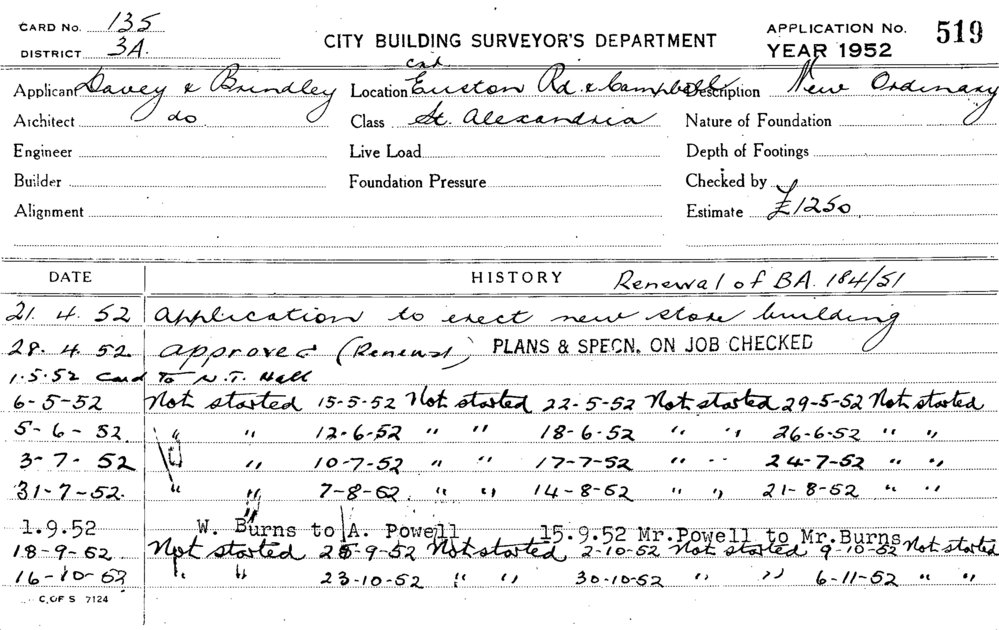 CARD No. 135
DISTRICT 3A.
CITY BUILDING SURVEYOR'S DEPARTMENT
APPLICATION No. 519
YEAR 1952
Applicant Davey & Brindley Location Cnr Euston Rd & Campbell Description New Ordinary
Architect do Class St. Alexandria Nature of Foundation
Engineer Live Load Depth of Footings
Builder Foundation Pressure Checked by
Alignment Estimate £1250
DATE HISTORY Renewal of BA. 184/51
21. 4. 52 Application to erect new store building
28. 4. 52. Approved (Renewal) PLANS & SPECN. ON JOB CHECKED
1.5.52 Card to W.T. Hall
6-5-52 Not started 15-5-52 Not started 22-5-52 Not started 29-5-52 Not started
5-6-52 " " 12-6-52 " " 18-6-52 " " 26-6-52 " "
3-7-52 " " 10-7-52 " " 17-7-52 " " 24-7-52 " "
31-7-52. " " 7-8-52. " " 14-8-52 " " 21-8-52 " "
1.9.52 W. Burns to A. Powell 15.9.52 Mr.Powell to Mr.Burns
18-9-52 Not started 25-9-52 Not started 2-10-52 Not started 9-10-52 Not started
16-10-52 " " 23-10-52 " " 30-10-52 " " 6-11-52 " "
C. OF S 7124